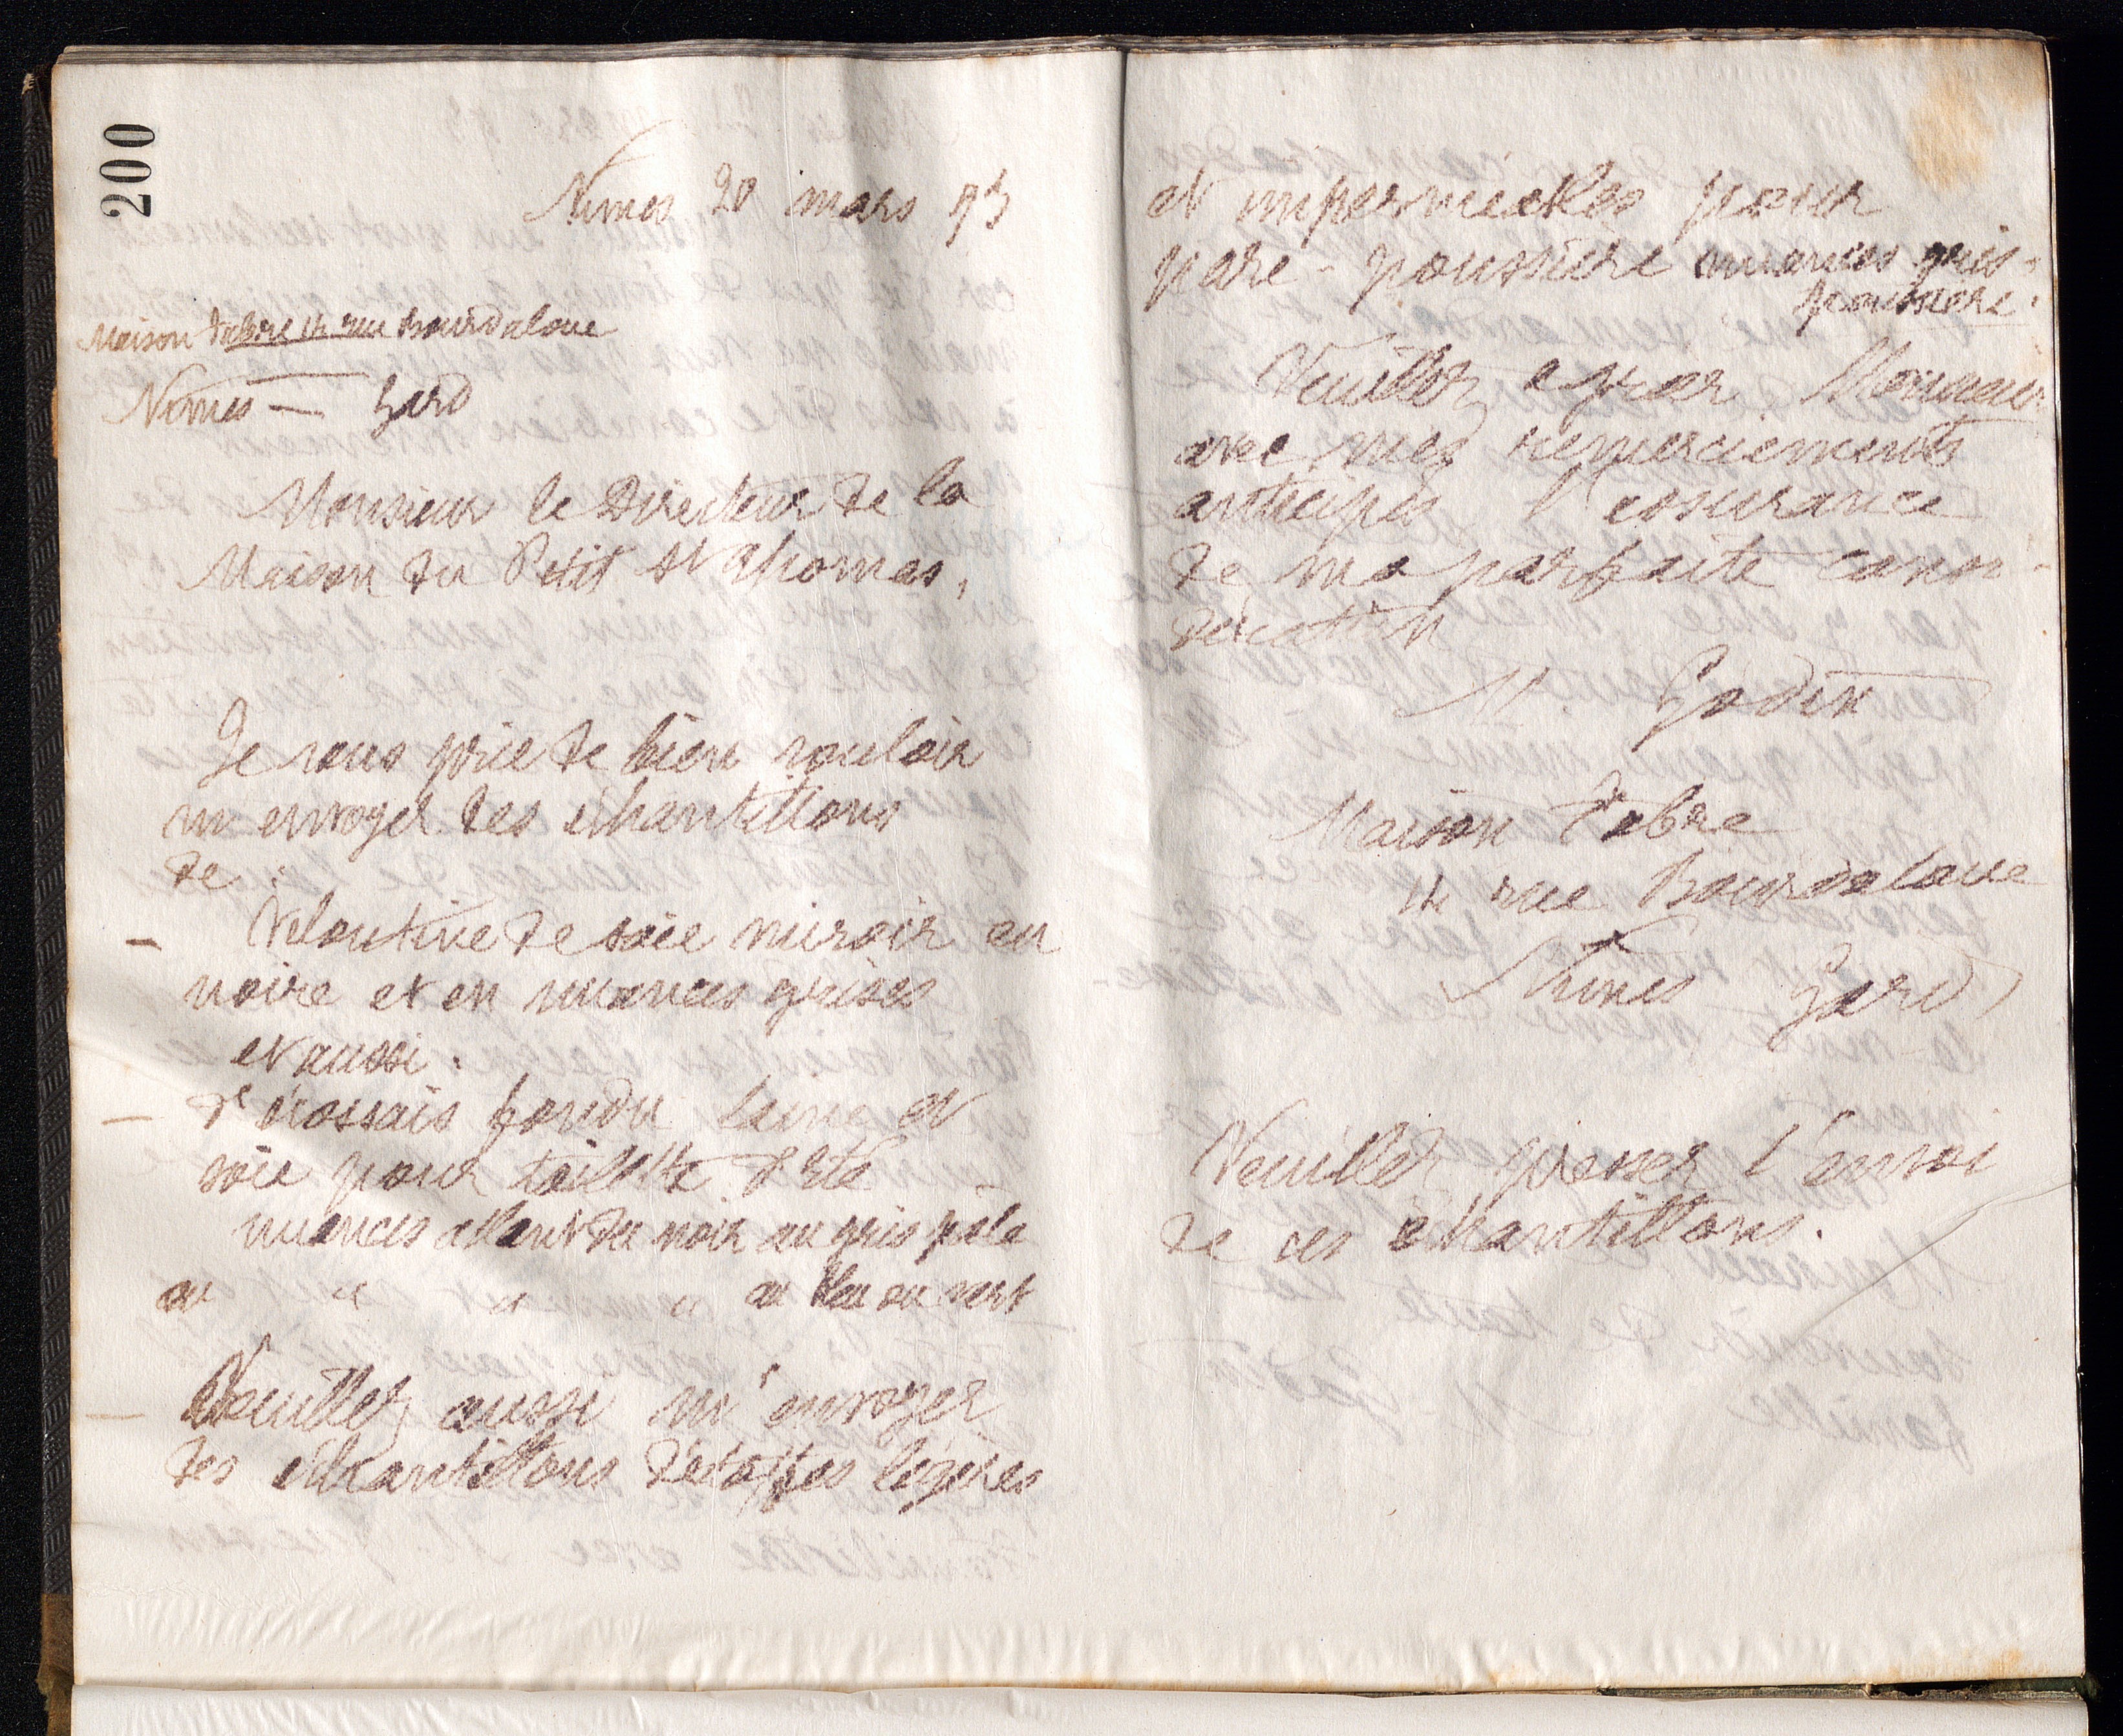 200
Nimes 20 mars 93
Maison Fabre 14 rue Bourdaloue
Nîmes — Gard
Monsieur le Directeur de la
Maison du Petit St Thomas,
Je vous prie de bien vouloir
m'envoyer des échantillons
de :
— Veloutine de soie miroir en
noire et en nuances grises
et aussi :
— d'écossais fondu laine et
soie pour toilette d'été
nuances allant du noir au gris pâle
et " " " au bleu ou vert
— Veuillez aussi m'envoyer
des échantillons d'étoffes légères
et imperméables pour
pare-poussière nuances gris-
poussière.
Veuillez agréer Monsieur
avec mes remerciements
anticipés l'assurance
de ma parfaite consi-
dération
M Godin
Maison Fabre
14 rue Bourdaloue
Nîmes Gard
Veuillez presser l'envoi
de ces échantillons.